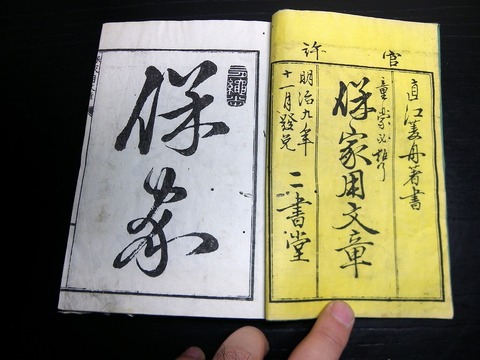 官許
直江菱舟著書
童蒙必携
保家用文章
明治九年
十一月發兌
二書堂
保家